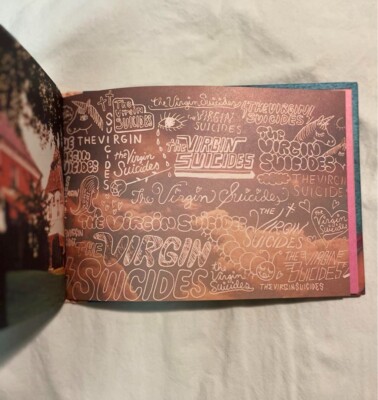 THE VIRGIN SUICIDES
the Virgin Suicides
THE VIRGIN SUICIDES
THE VIRGIN
SUICIDES
THE VIRGIN
SUICIDES
THE VIRGIN
SUICIDES
THE VIRGIN
SUICIDES
THE
VIRGIN
SUICIDES
the Virgin
Suicides
THE VIRGIN
SUICIDES
The Virgin Suicides
THE VIRGIN SUICIDES
THE
VIRGIN
SUICIDES
the
Virgin
Suicides
THE VIRGIN
SUICIDES
the
Virgin
Suicides
THE VIRGIN
SUICIDES
THE VIRGIN SUICIDES